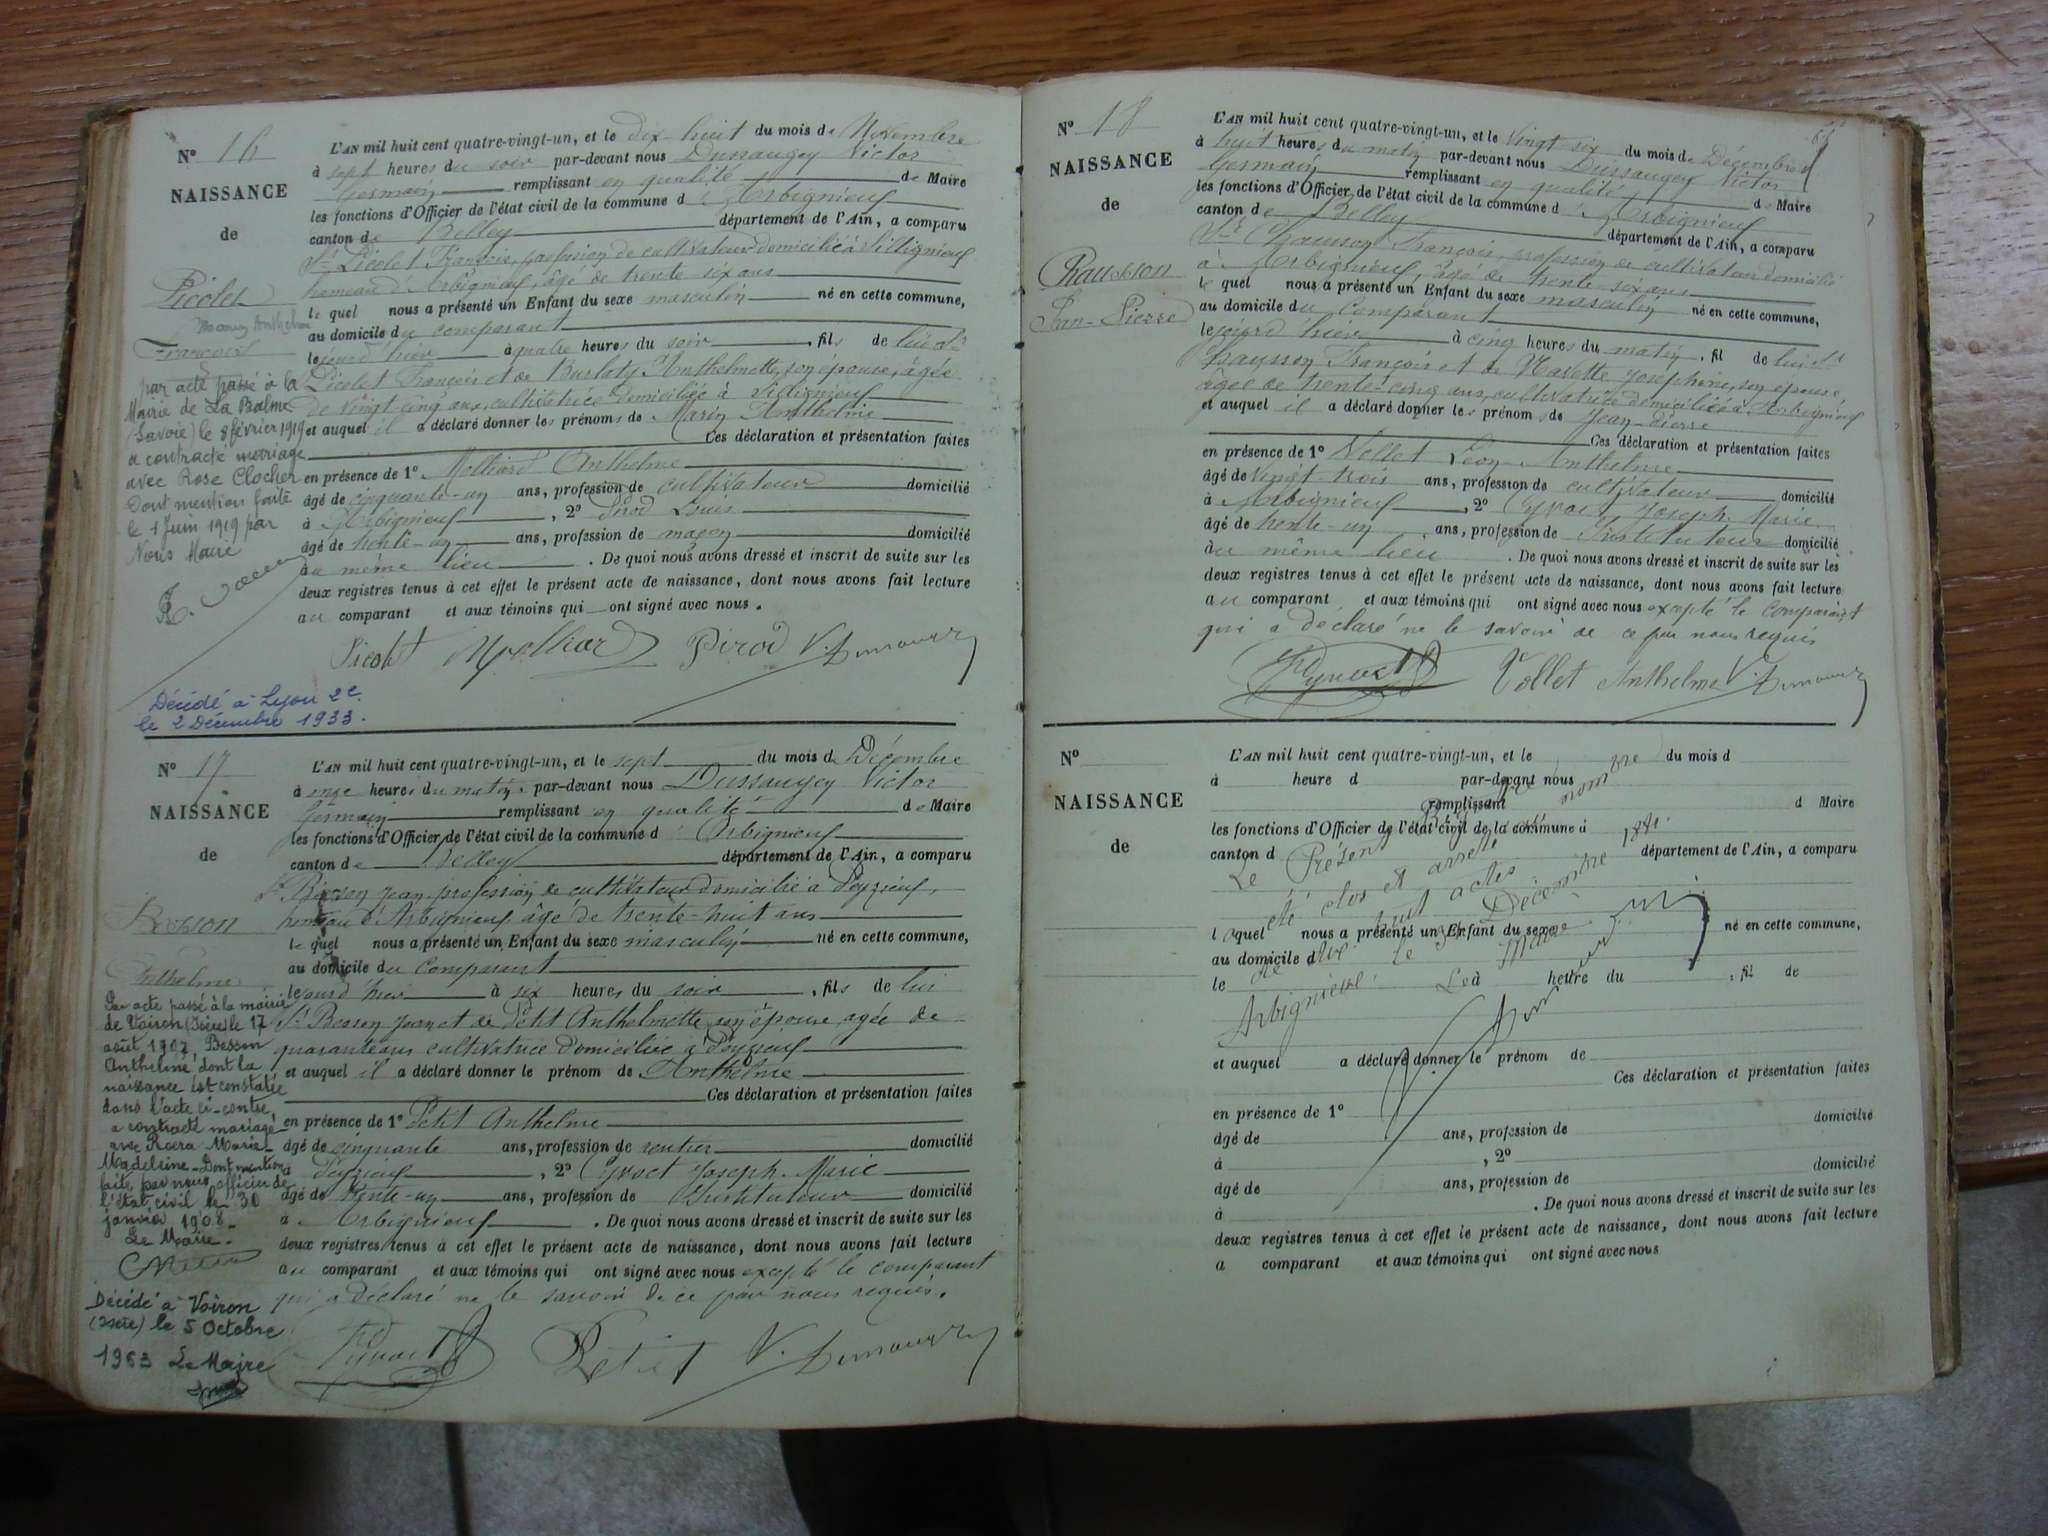 N° 16
NAISSANCE
de
Picolet
Marin Anthelme
François
par acte passé à la
Mairie de La Balme
(Savoie) le 8 février 1919
a contracté mariage
avec Rose Clocher
Dont mention faite
le 1 Juin 1919 par
Nous Maire
Décédé à Lyon 2e
le 2 Décembre 1933.
L'AN mil huit cent quatre-vingt-un, et le dix-huit du mois de Novembre
à sept heures du soir par-devant nous Dussaugey Victor
Germain remplissant en qualité de Maire
les fonctions d'Officier de l'état civil de la commune d'Arbignieu
canton de Belley département de l'Ain, a comparu
Sr Picolet François, profession de cultivateur domicilié à Sillignieu
hameau d'Arbignieu, âgé de trente six ans
lequel nous a présenté un Enfant du sexe masculin né en cette commune,
au domicile du comparant
le jourd'hier à quatre heures du soir, fils de lui Sr
Picolet François et de Burlaty Anthelmette, son épouse, âgée
de vingt-cinq ans, cultivatrice domiciliée à Sillignieu
et auquel il a déclaré donner les prénoms de Marin Anthelme
Ces déclaration et présentation faites
en présence de 1° Molliard Anthelme
âgé de cinquante-un ans, profession de cultivateur domicilié
à Arbignieu, 2° Pirod Louis
âgé de trente-un ans, profession de maçon domicilié
au même lieu. De quoi nous avons dressé et inscrit de suite sur les
deux registres tenus à cet effet le présent acte de naissance, dont nous avons fait lecture
au comparant et aux témoins qui ont signé avec nous.
Picolet Molliard Pirod V. Dussaugey
N° 17
NAISSANCE
de
Besson
Anthelme
Par acte passé à la mairie
de Voiron (Isère) le 17
août 1907, Besson
Anthelme dont la
naissance est constatée
dans l'acte ci-contre,
a contracté mariage
avec Marie-
Madeleine. Dont mention
faite par nous officier de
l'état civil le 30
janvier 1908.
Le Maire.
Décédé à Voiron
(Isère) le 5 Octobre
1963 Le Maire
L'AN mil huit cent quatre-vingt-un, et le sept du mois de Décembre
à onze heures du matin par-devant nous Dussaugey Victor
Germain remplissant en qualité de Maire
les fonctions d'Officier de l'état civil de la commune d'Arbignieu
canton de Belley département de l'Ain, a comparu
Sr Besson Jean, profession de cultivateur domicilié à Peyzieu,
hameau d'Arbignieu, âgé de trente-huit ans
lequel nous a présenté un Enfant du sexe masculin né en cette commune,
au domicile du comparant
le jourd'hier à six heures du soir, fils de lui
Sr Besson Jean et de Petit Anthelmette, son épouse, agée de
quarante ans cultivatrice domiciliée à Peyzieu
et auquel il a déclaré donner le prénom de Anthelme
Ces déclaration et présentation faites
en présence de 1° Petit Anthelme
âgé de cinquante ans, profession de rentier domicilié
à Peyzieu, 2° Cyvoct Joseph-Marie
âgé de trente-un ans, profession de Instituteur domicilié
à Arbignieu. De quoi nous avons dressé et inscrit de suite sur les
deux registres tenus à cet effet le présent acte de naissance, dont nous avons fait lecture
au comparant et aux témoins qui ont signé avec nous excepté le comparant
qui a déclaré ne le savoir de ce par nous requis.
Cyvoct Petit V. Dussaugey
N° 18
NAISSANCE
de
Chausson
Jean-Pierre
L'AN mil huit cent quatre-vingt-un, et le vingt six du mois de Décembre
à huit heures du matin par-devant nous Dussaugey Victor
Germain remplissant en qualité de Maire
les fonctions d'Officier de l'état civil de la commune d'Arbignieu
canton de Belley département de l'Ain, a comparu
Sr Chausson François, profession de cultivateur domicilié
à Arbignieu, âgé de trente-six ans
lequel nous a présenté un Enfant du sexe masculin né en cette commune,
au domicile du Comparant
le jourd'hier à cinq heures du matin, fil de lui Sr
Chausson François et de Josephine, son épouse,
âgée de trente-cinq ans, cultivatrice domiciliée à Arbignieu
et auquel il a déclaré donner les prénoms de Jean-Pierre
Ces déclaration et présentation faites
en présence de 1° Vollet Léon-Anthelme
âgé de vingt-trois ans, profession de cultivateur domicilié
à Arbignieu, 2° Cyvoct Joseph-Marie
âgé de trente-un ans, profession de Instituteur domicilié
au même lieu. De quoi nous avons dressé et inscrit de suite sur les
deux registres tenus à cet effet le présent acte de naissance, dont nous avons fait lecture
au comparant et aux témoins qui ont signé avec nous excepté le comparant
qui a déclaré ne le savoir de ce par nous requis
Cyvoct Vollet Anthelme V. Dussaugey
N°
NAISSANCE
de
L'AN mil huit cent quatre-vingt-un, et le du mois d
à heure d par-devant nous
remplissant d Maire
les fonctions d'Officier de l'état civil de la commune d
canton d département de l'Ain, a comparu
l quel nous a présenté un Enfant du sexe né en cette commune,
au domicile d
le à heure du, fil de
et auquel a déclaré donner le prénom de
Ces déclaration et présentation faites
en présence de 1° domicilié
âgé de ans, profession de
à, 2° domicilié
âgé de ans, profession de
à. De quoi nous avons dressé et inscrit de suite sur les
deux registres tenus à cet effet le présent acte de naissance, dont nous avons fait lecture
a comparant et aux témoins qui ont signé avec nous
Le Présent Registre
été clos et arrêté nombre
de dix huit actes
Arbignieu le 31 Décembre 1881.
Le Maire
V. Dussaugey